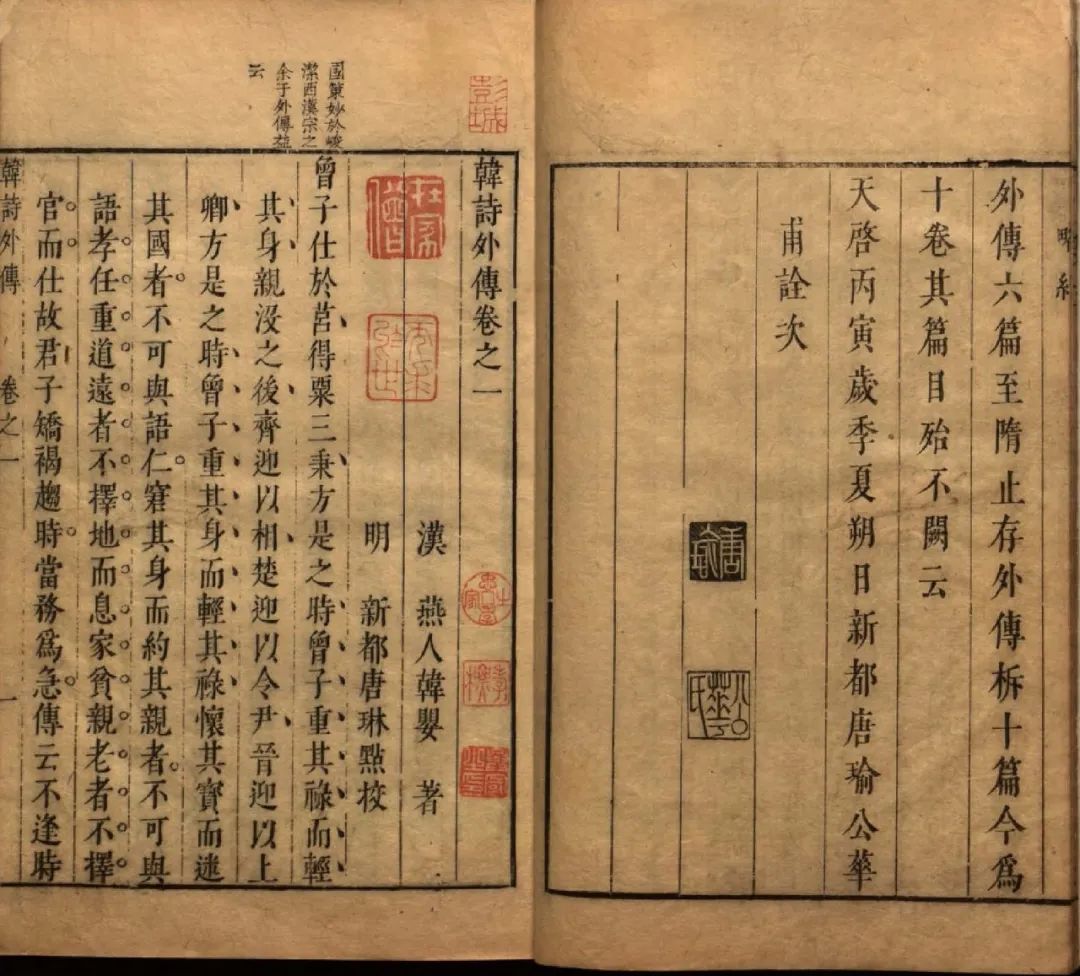 外傳六篇至隋止存外傳析十篇今爲
十卷其篇目殆不闕云
天啓丙寅歲季夏朔日新都唐瑜公華
甫詮次
唐瑜
公華氏
彭城
國策妙於峻
潔西漢宗之
余于外傳益
云
韓詩外傳卷之一
漢 燕人韓嬰 著
明 新都唐琳點校
曾子仕於莒得粟三秉方是之時曾子重其祿而輕
其身親沒之後齊迎以相楚迎以令尹晉迎以上
卿方是之時曾子重其身而輕其祿懷其寶而迷
其國者。不可與語仁。窘其身而約其親者。不可與
語孝任重道遠者不擇地而息家貧親老者不擇
官而仕故君子矯褐趨時當務爲急傳云不逢時
韓詩外傳 卷之一 一